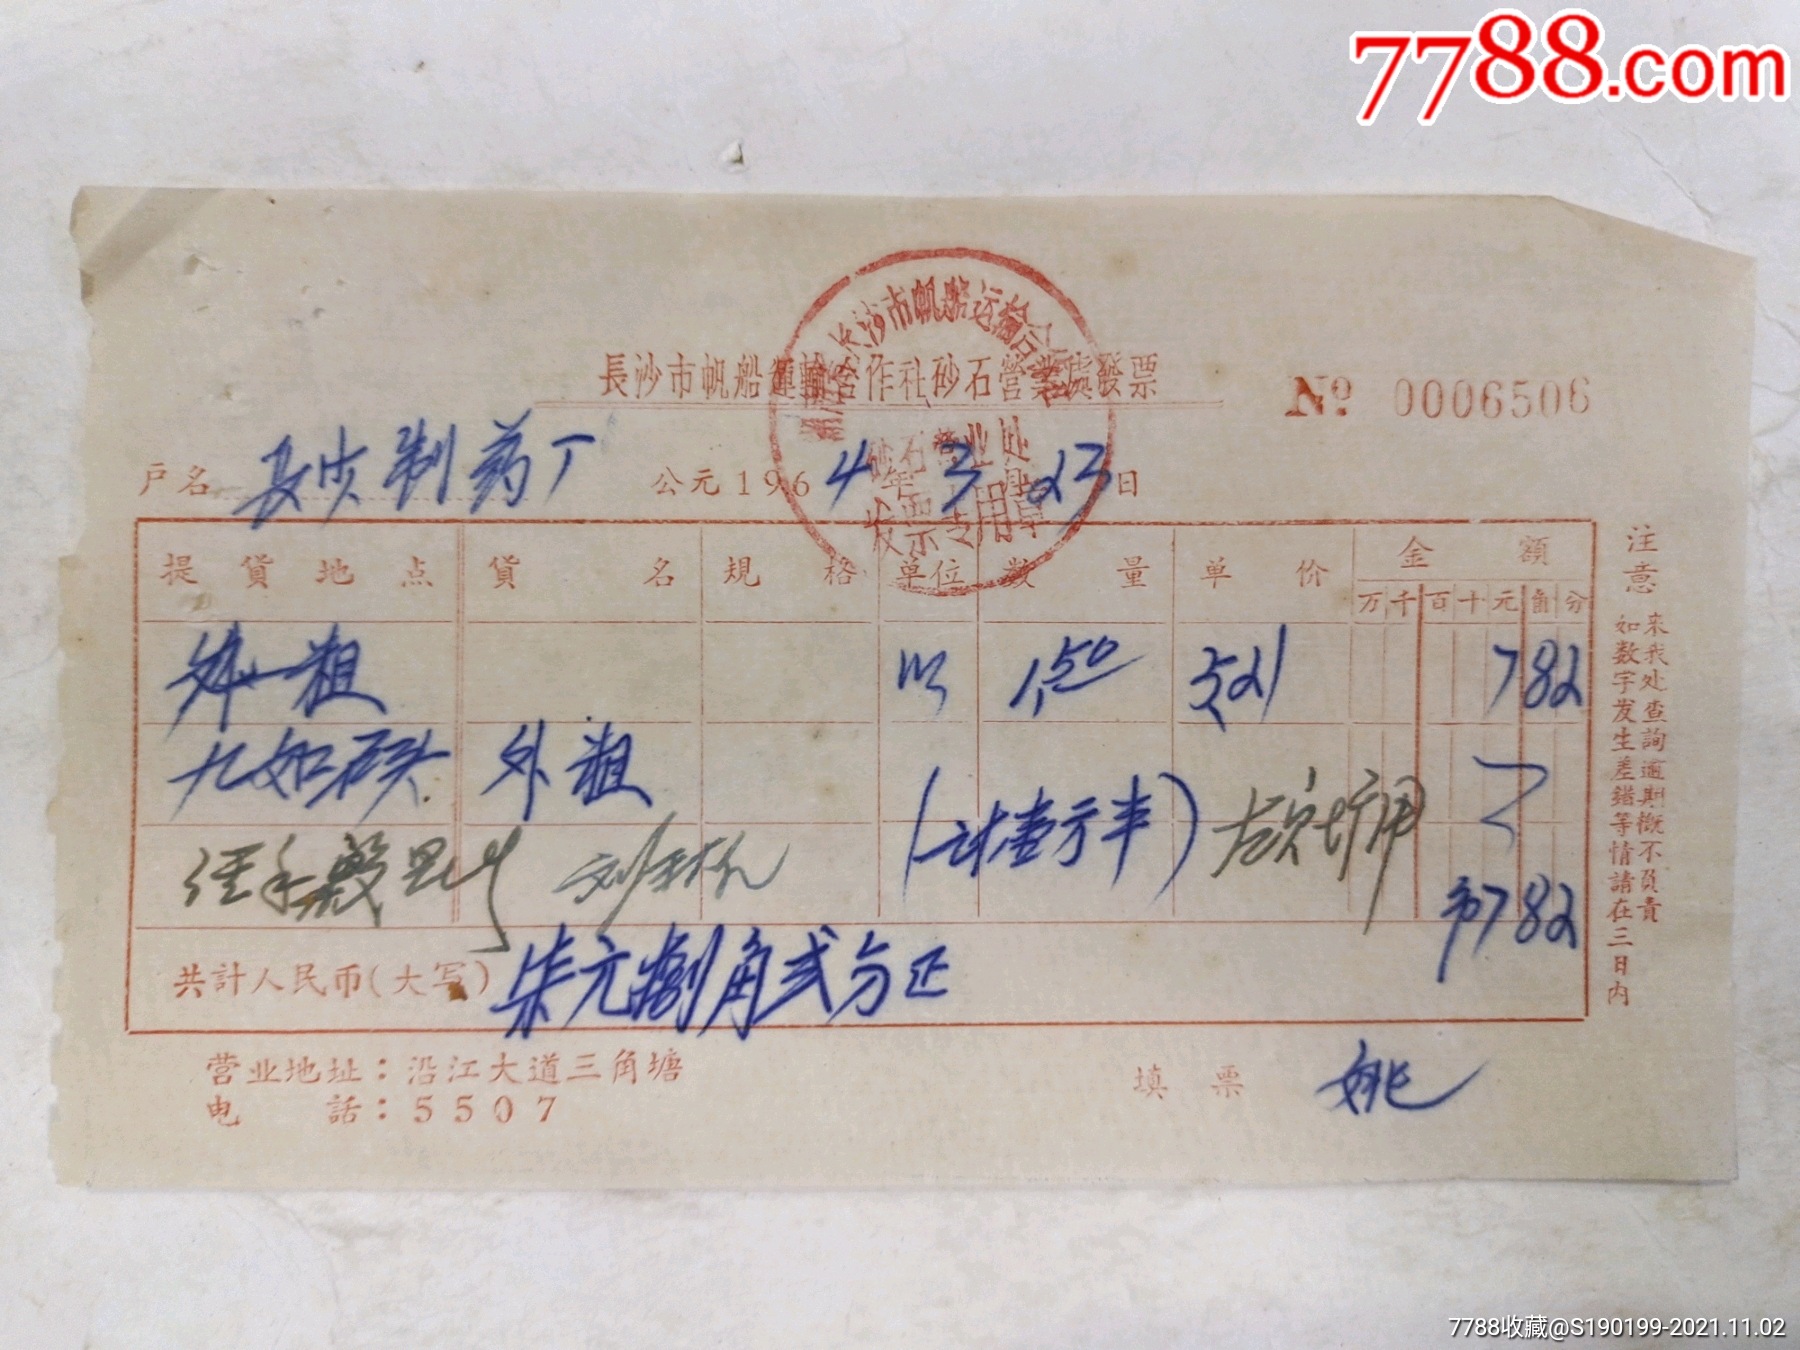 7788.com
長沙市帆船運輸合作社砂石營業處發票
№ 0006506
長沙市帆船运输合
砂石营业处
发票专用章
户名 長沙制药厂 公元1964年3月23日
提貨地点 貨名 規格 单位 数量 单价 金額
万千百十元角分
粗 M³ 1.50 5.21 782
九如码头 外粗
(计壹方半)
经手 刘
币782
共計人民币(大写) 柒元捌角弍分正
营业地址：沿江大道三角塘
电話：5507
填票 姚
注意 如数字发生差錯等情請在三日内
来我处查詢逾期概不負責
7788收藏@S190199-2021.11.02